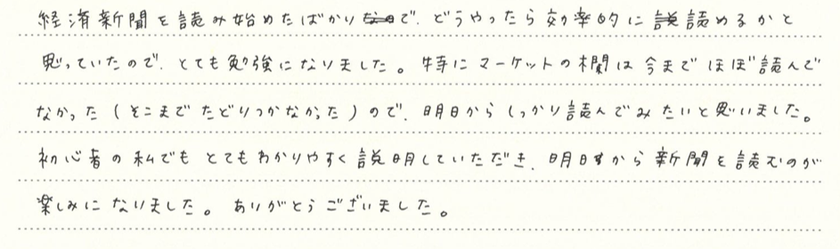 経済新聞を読み始めたばかりで、どうやったら効率的に読めるかと
思っていたので、とても勉強になりました。特にマーケットの欄は今までほぼ読んで
なかった(そこまでたどりつかなかった)ので、明日からしっかり読んでみたいと思いました。
初心者の私でもとてもわかりやすく説明していただき、明日から新聞を読むのが
楽しみになりました。ありがとうございました。